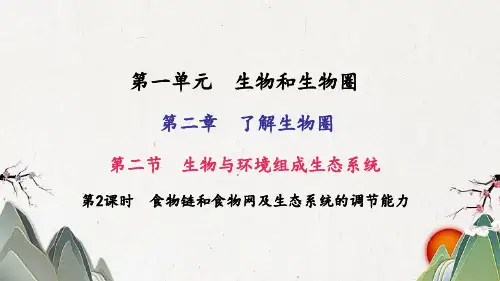 第一单元　生物和生物圈
第二章　了解生物圈
第二节　生物与环境组成生态系统
第2课时　食物链和食物网及生态系统的调节能力